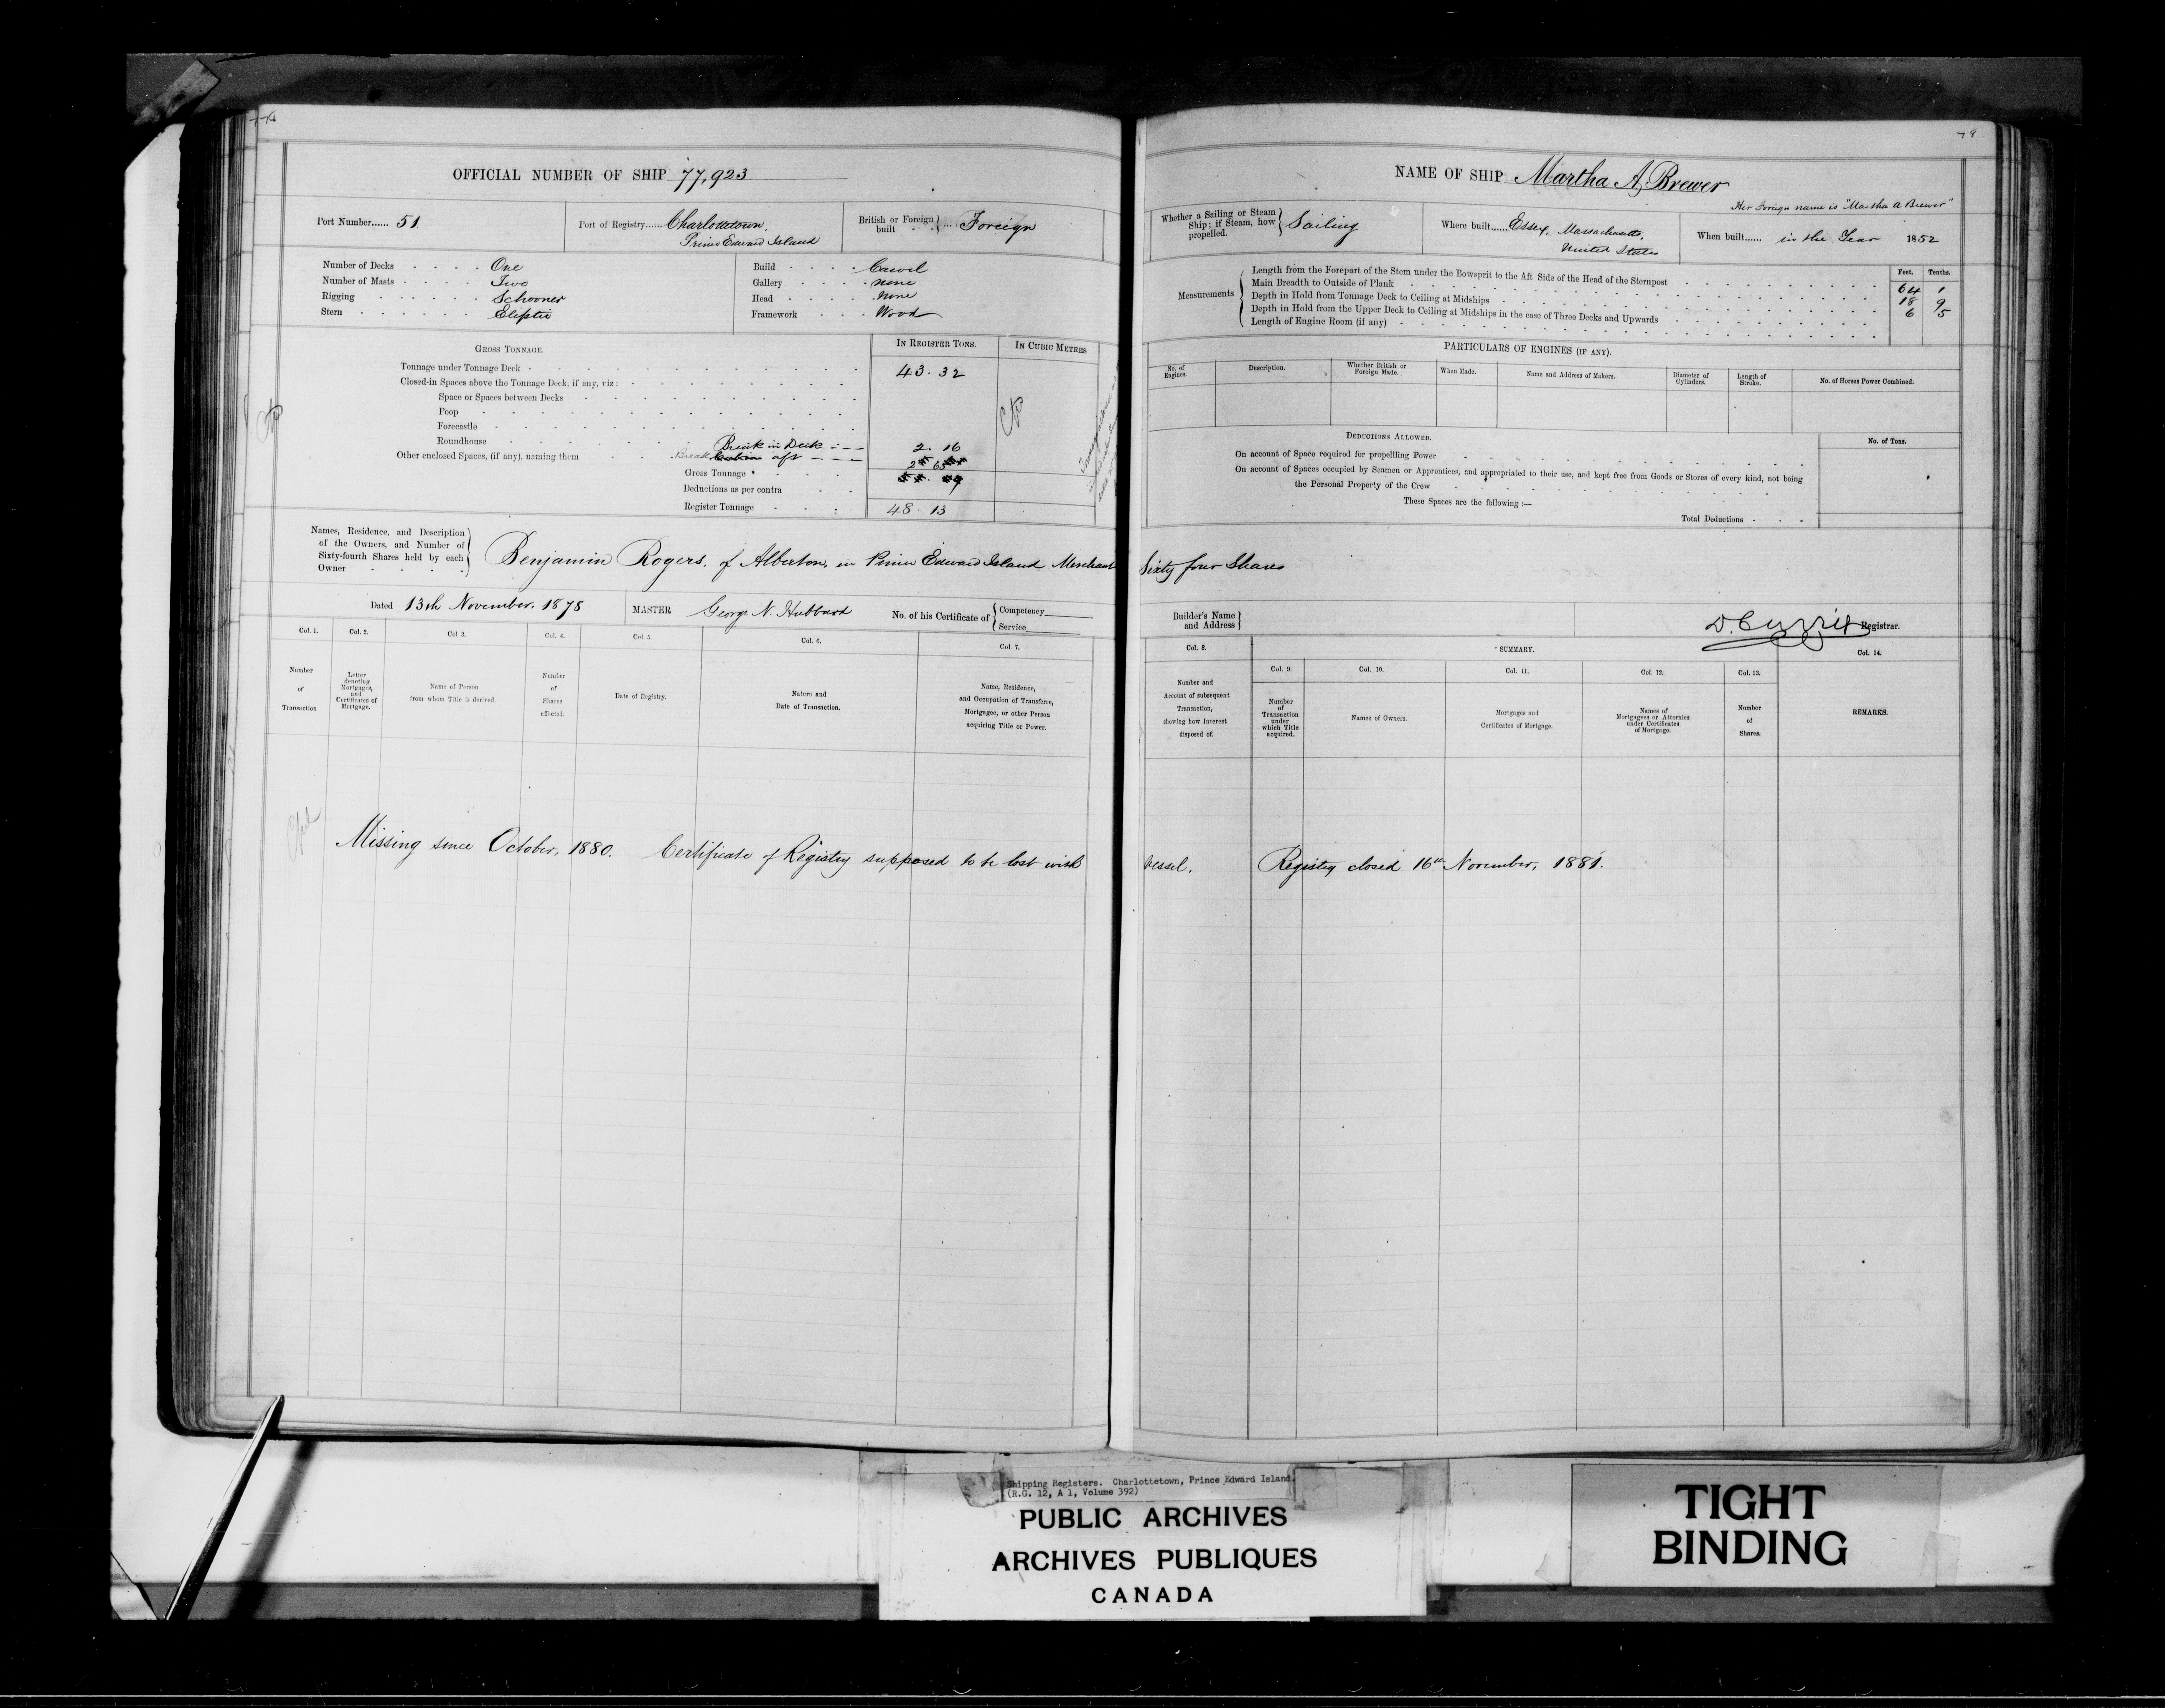 OFFICIAL NUMBER OF SHIP 77,923
Port Number...... 51
Port of Registry...... Charlottetown.
Prince Edward Island
British or Foreign built ... Foreign
Number of Decks One
Number of Masts Two
Rigging Schooner
Stern Eliptic
Build Carvel
Gallery none
Head None
Framework Wood
GROSS TONNAGE.
IN REGISTER TONS.
IN CUBIC METRES
Tonnage under Tonnage Deck 43.32
Closed-in Spaces above the Tonnage Deck, if any, viz:
Space or Spaces between Decks
Poop
Forecastle
Roundhouse Break in Deck 2.16
Other enclosed Spaces, (if any), naming them Break aft 2 65
Gross Tonnage
Deductions as per contra
Register Tonnage 48.13
Names, Residence, and Description of the Owners, and Number of Sixty-fourth Shares held by each Owner
Benjamin Rogers, of Alberton, in Prince Edward Island Merchant Sixty four Shares
Dated 13th November. 1878
MASTER George N. Hubbard
No. of his Certificate of Competency
Service
Col. 1.
Number of Transaction
Col. 2.
Letter denoting Mortgages, and Certificates of Mortgage.
Col 3.
Name of Person from whom Title is derived.
Col. 4.
Number of Shares affected.
Col. 5.
Date of Registry.
Col. 6.
Nature and Date of Transaction.
Col. 7.
Name, Residence, and Occupation of Transferee, Mortgagee, or other Person acquiring Title or Power.
Missing since October, 1880. Certificate of Registry supposed to be lost with vessel. Registry closed 16th November, 1881.
78
NAME OF SHIP Martha A. Brewer
Her Foreign name is "Martha A Brewer"
Whether a Sailing or Steam Ship; if Steam, how propelled. Sailing
Where built...... Essex, Massachusetts,
United States
When built...... in the Year 1852
Measurements
Feet. Tenths.
Length from the Forepart of the Stem under the Bowsprit to the Aft Side of the Head of the Sternpost 64 1
Main Breadth to Outside of Plank 18 9
Depth in Hold from Tonnage Deck to Ceiling at Midships 6 5
Depth in Hold from the Upper Deck to Ceiling at Midships in the case of Three Decks and Upwards
Length of Engine Room (if any)
PARTICULARS OF ENGINES (IF ANY).
No. of Engines.
Description.
Whether British or Foreign Made.
When Made.
Name and Address of Makers.
Diameter of Cylinders.
Length of Stroke.
No. of Horses Power Combined.
DEDUCTIONS ALLOWED.
No. of Tons.
On account of Space required for propellling Power
On account of Spaces occupied by Seamen or Apprentices, and appropriated to their use, and kept free from Goods or Stores of every kind, not being
the Personal Property of the Crew
These Spaces are the following:—
Total Deductions
Builder's Name and Address
D. Currie Registrar.
Col. 8.
Number and Account of subsequent Transaction, showing how Interest disposed of.
SUMMARY.
Col. 9.
Number of Transaction under which Title acquired.
Col. 10.
Names of Owners.
Col. 11.
Mortgages and Certificates of Mortgage.
Col. 12.
Names of Mortgagees or Attornies under Certificates of Mortgage.
Col. 13.
Number of Shares.
Col. 14.
REMARKS.
Shipping Registers. Charlottetown, Prince Edward Island.
(R.G. 12, A 1, Volume 392)
PUBLIC ARCHIVES
ARCHIVES PUBLIQUES
CANADA
TIGHT
BINDING